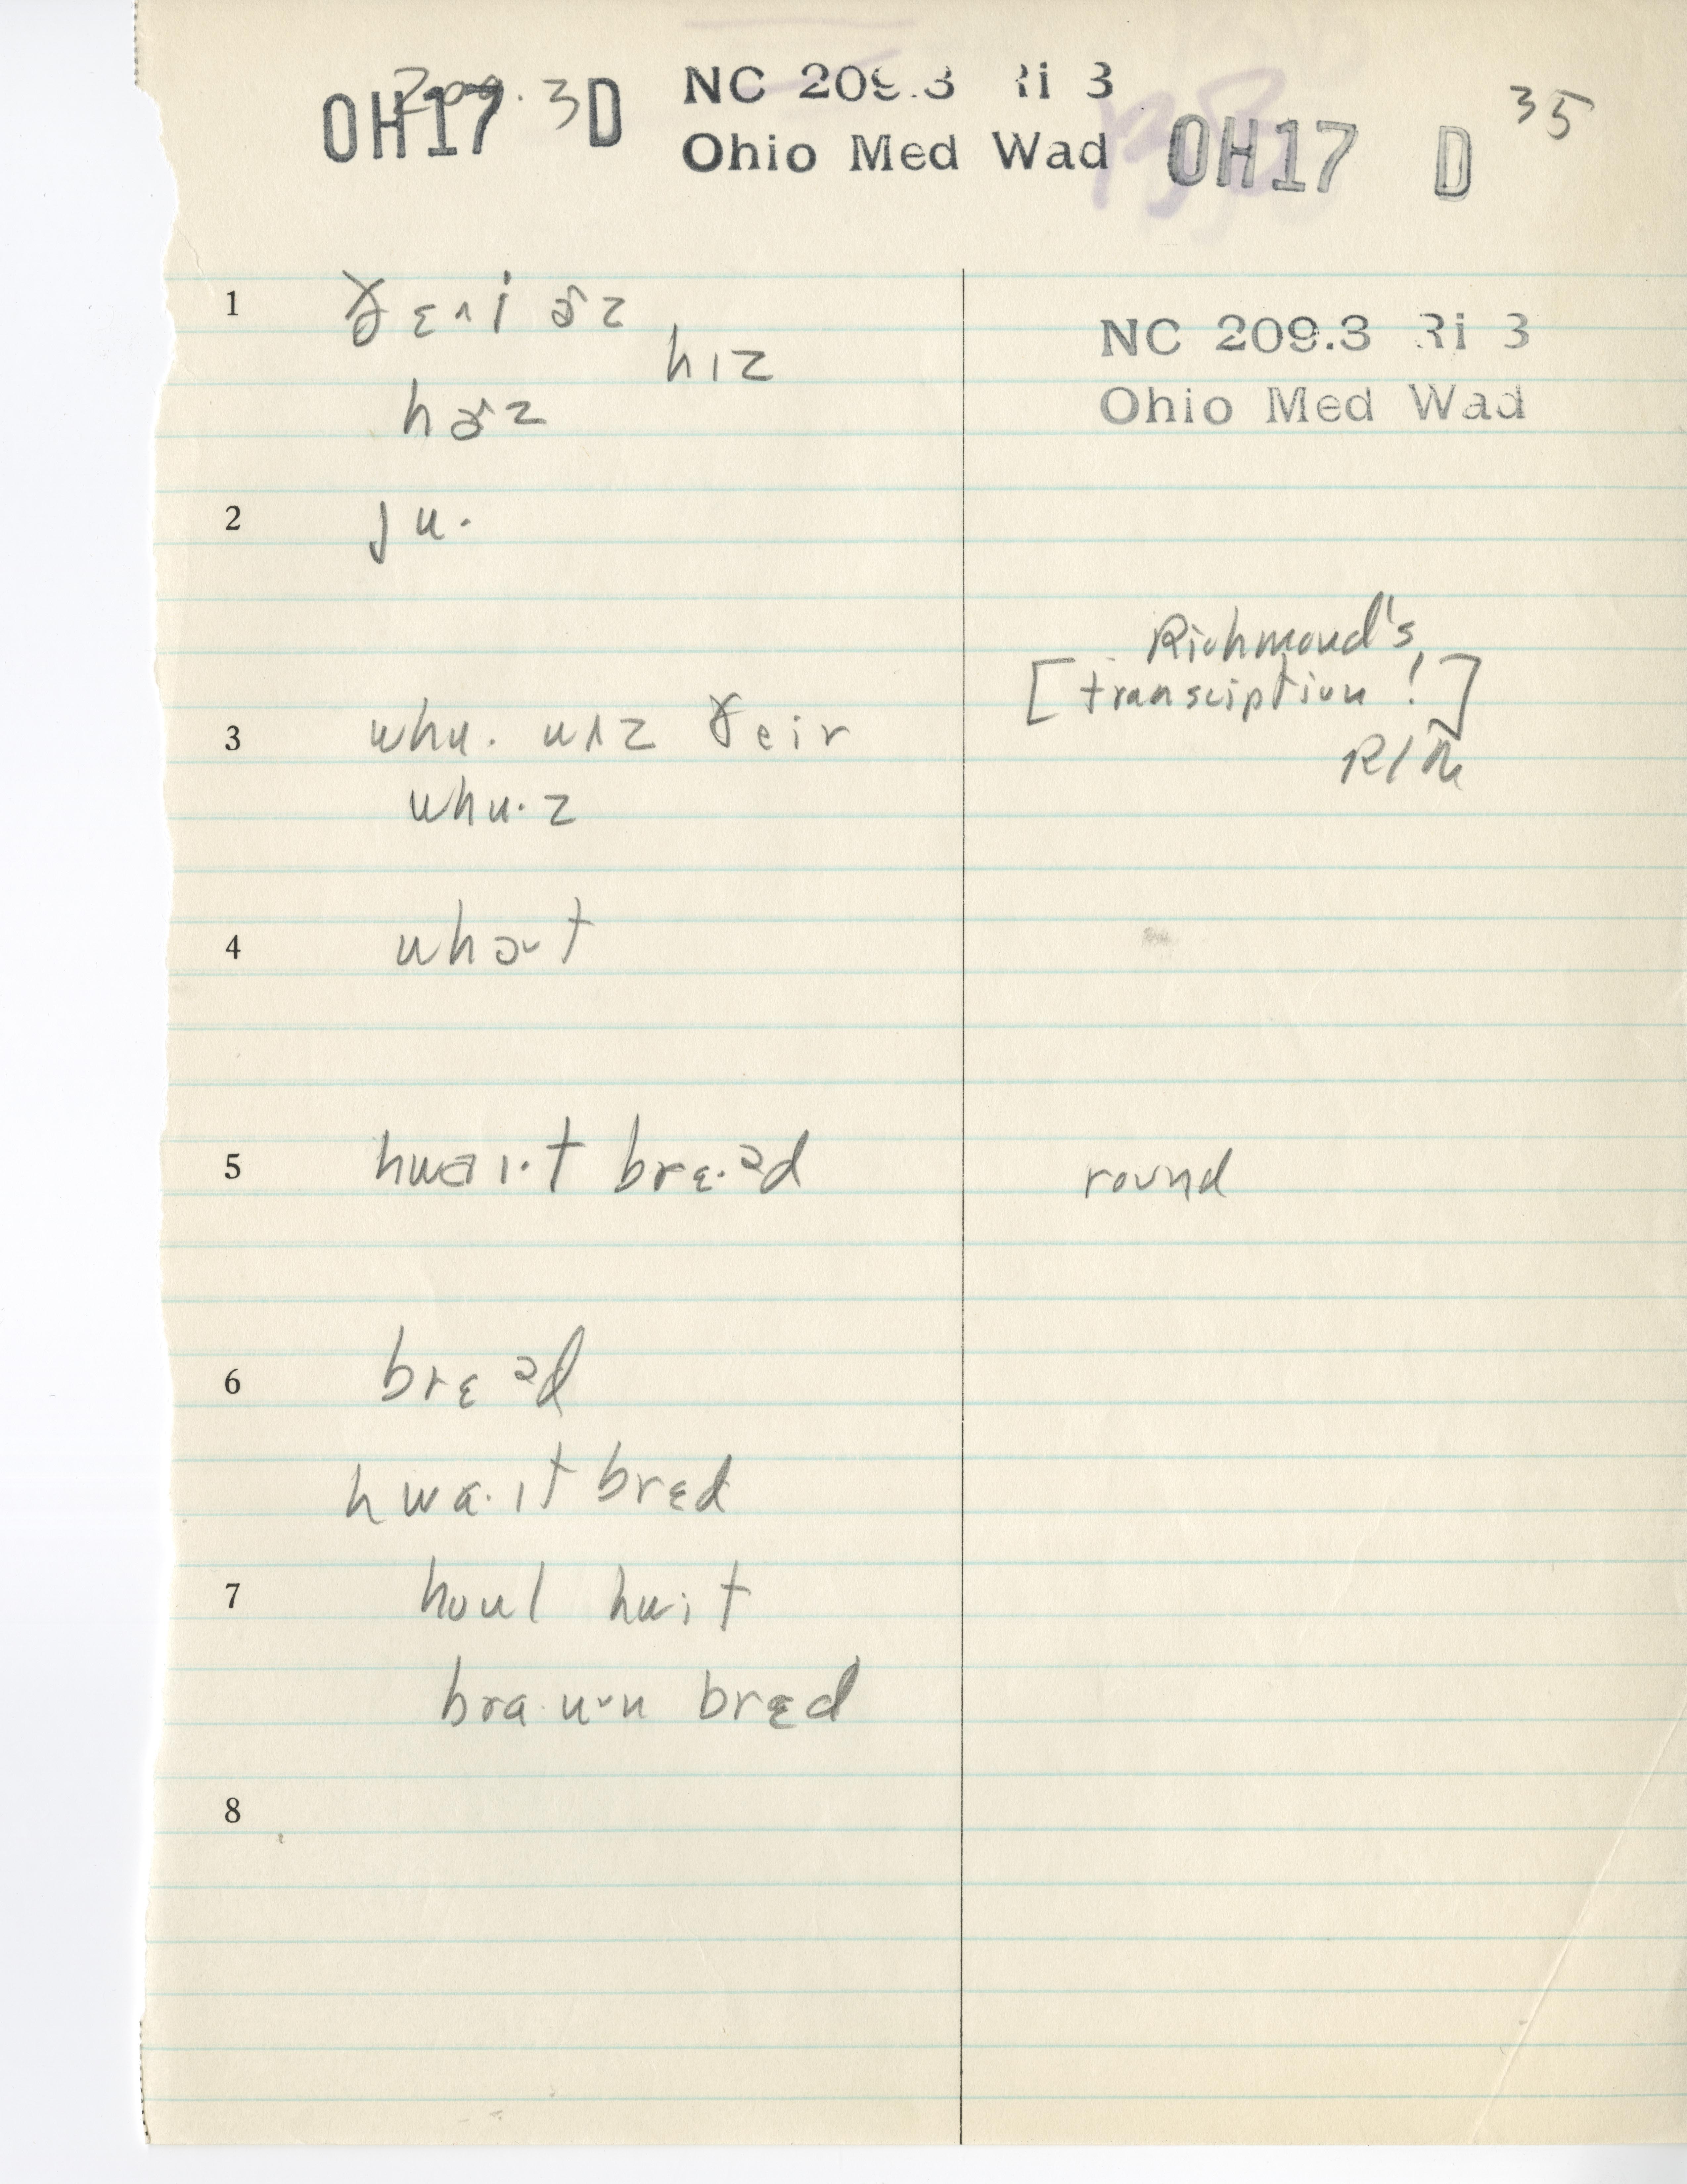 209.3
OH17 D NC 209.3 Ri 3
Ohio Med Wad OH17 D 35
1 ðɛʌi ɚz
hɪz
hɚz
NC 209.3 Ri 3
Ohio Med Wad
2 ju·
Richmond's
[transciption!]
3 whu· uʌz ðeir
R/R
whu·z
4 uhɔt
5 hwaɪ·t brɛ·ᵊd round
6 brɛᵊd
hwa·ɪt brɛd
7 houl huit
bra·uᵛn brɛd
8